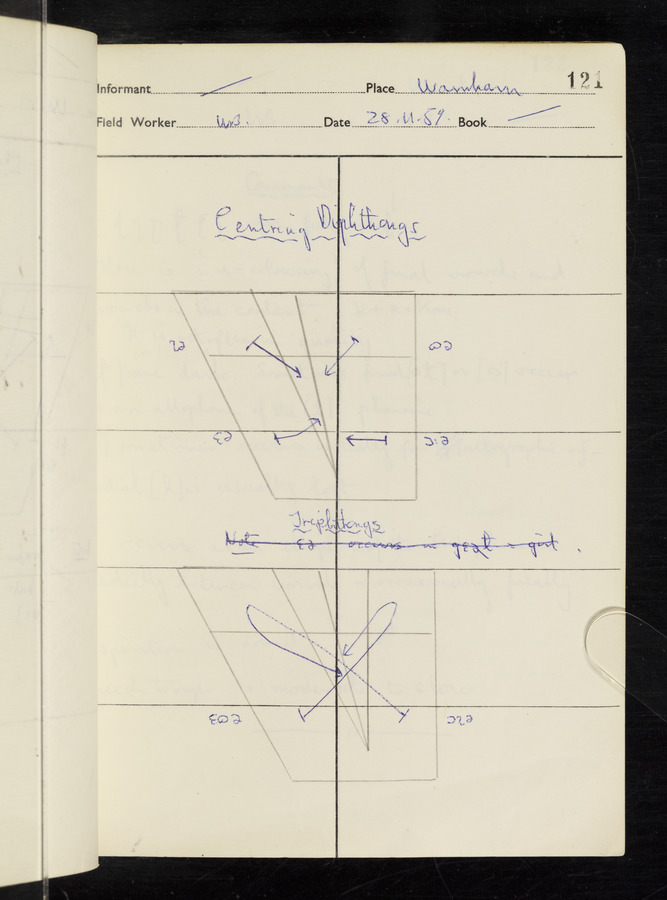 121
Informant Place Warnham
Field Worker W.B. Date 28.11.59. Book
Centring Diphthongs
ɩə ʊə
ɛə ɔːə
Triphthongs
Note ɛə occurs in goat + girl.
ɛʊə ɔɩə